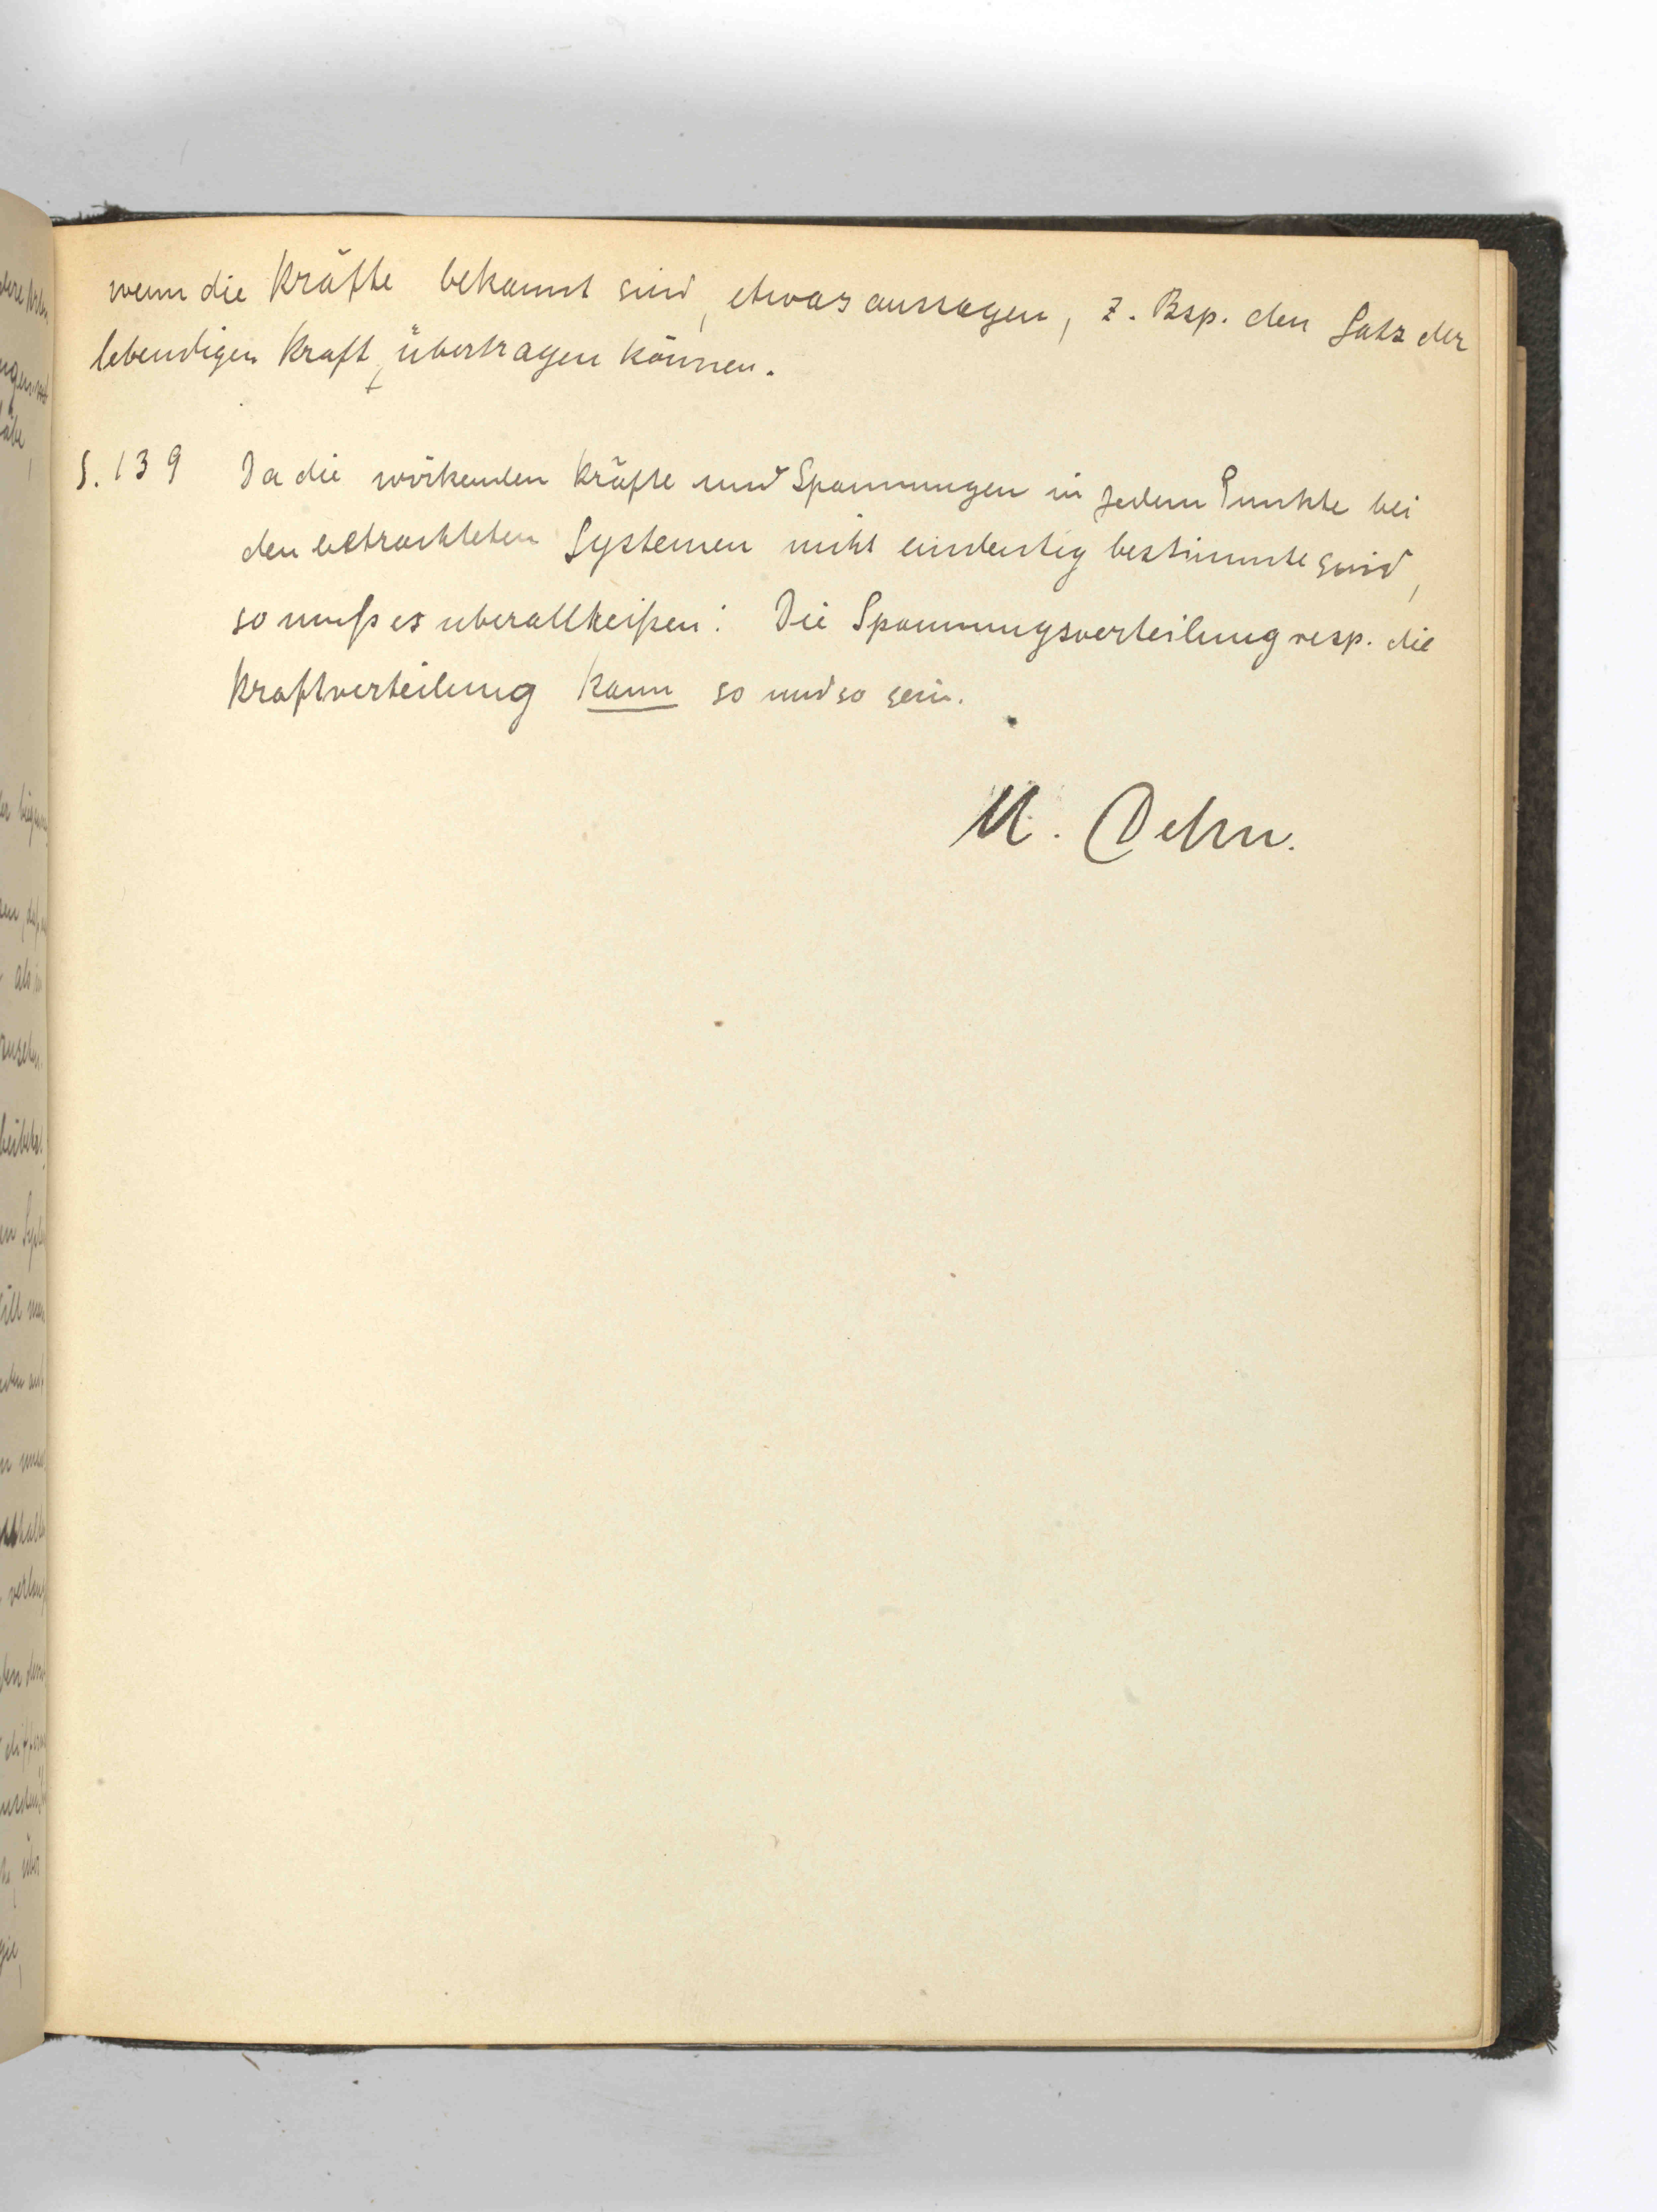 wenn die Kräfte bekannt sind, etwas aussagen, z. Bsp. den Satz der
lebendigen Kraft, übertragen können.
S. 139 Da die wirkenden Kräfte und Spannungen in jedem Punkte bei
den betrachteten Systemen nicht eindeutig bestimmte sind,
so muß es uberall heißen: Die Spannungsverteilung resp. die
Kraftverteilung kann so und so sein.
M. Dehn.